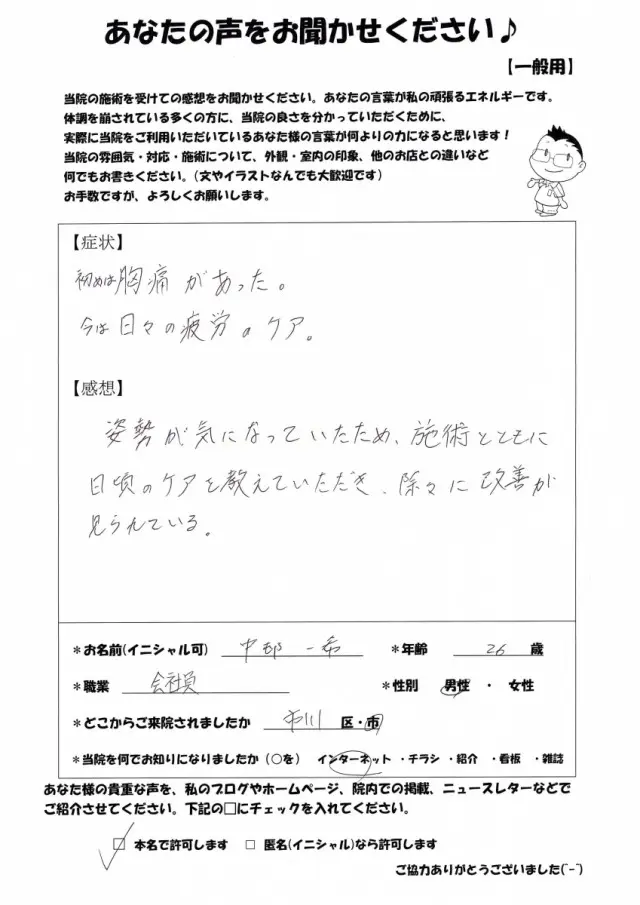 あなたの声をお聞かせください♪
【一般用】
当院の施術を受けての感想をお聞かせください。あなたの言葉が私の頑張るエネルギーです。
体調を崩されている多くの方に、当院の良さを分かっていただくために、
実際に当院をご利用いただいているあなた様の言葉が何よりの力になると思います!
当院の雰囲気・対応・施術について、外観・室内の印象、他のお店との違いなど
何でもお書きください。(文やイラストなんでも大歓迎です)
お手数ですが、よろしくお願いします。
【症状】
初めは胸痛があった。
今は日々の疲労のケア。
【感想】
姿勢が気になっていたため、施術とともに
日頃のケアを教えていただき、除々に改善が
見られている。
*お名前(イニシャル可) 中部 一希 *年齢 26 歳
*職業 会社員 *性別 男性 ・ 女性
*どこからご来院されましたか 市川 区・市
*当院を何でお知りになりましたか(○を) インターネット ・チラシ ・紹介 ・看板 ・雑誌
あなた様の貴重な声を、私のブログやホームページ、院内での掲載、ニュースレターなどで
ご紹介させてください。下記の□にチェックを入れてください。
☑ 本名で許可します □ 匿名(イニシャル)なら許可します
ご協力ありがとうございました(^-^)